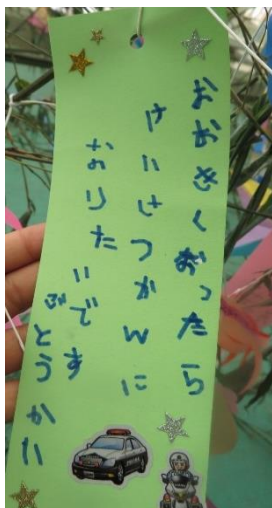 おおきくなったら
けいさつかんに
なりた
いです
とうかい